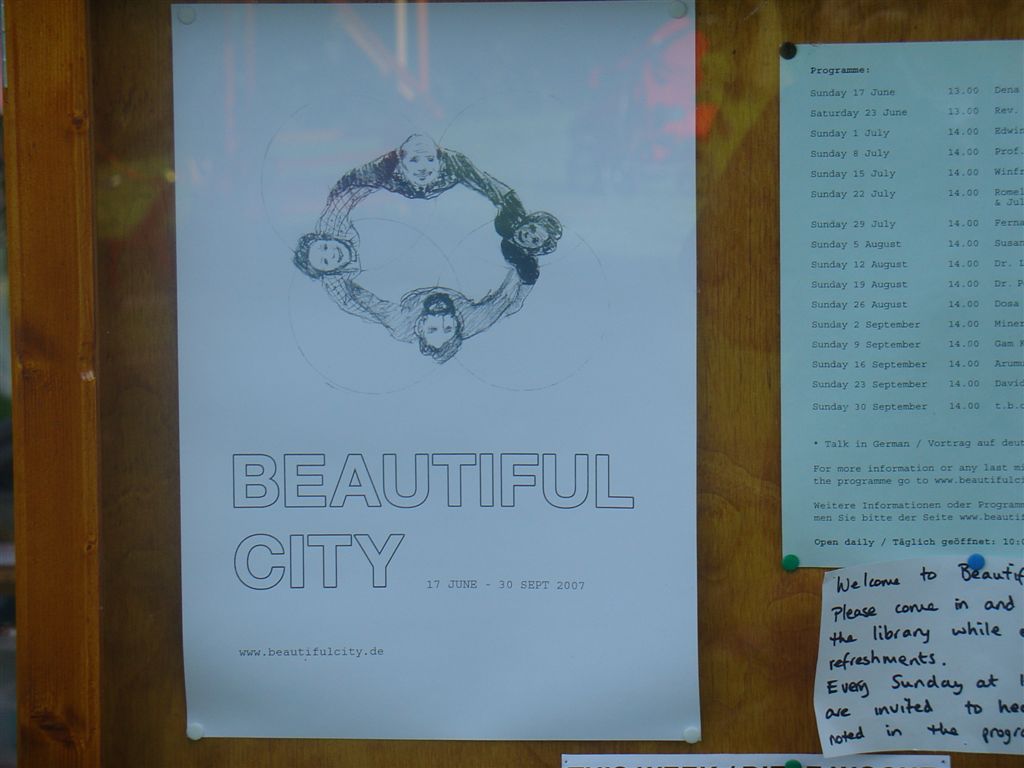 BEAUTIFUL
CITY
17 JUNE - 30 SEPT 2007
www.beautifulcity.de
Programme:
Sunday 17 June 13.00 Dena
Saturday 23 June 13.00 Rev.
Sunday 1 July 14.00 Edwin
Sunday 8 July 14.00 Prof.
Sunday 15 July 14.00 Winfr
Sunday 22 July 14.00 Romel
& Jul
Sunday 29 July 14.00 Ferna
Sunday 5 August 14.00 Susan
Sunday 12 August 14.00 Dr.
Sunday 19 August 14.00 Dr.
Sunday 26 August 14.00 Dosa
Sunday 2 September 14.00 Miner
Sunday 9 September 14.00 Gam
Sunday 16 September 14.00 Arumu
Sunday 23 September 14.00 David
Sunday 30 September 14.00 t.b.c
* Talk in German / Vortrag auf deut
For more information or any last mi
the programme go to www.beautifulci
Weitere Informationen oder Programm
men Sie bitte der Seite www.beautif
Open daily / Täglich geöffnet: 10:0
Welcome to Beautif
Please come in and
the library while
refreshments.
Every Sunday at
are invited to hea
noted in the progr